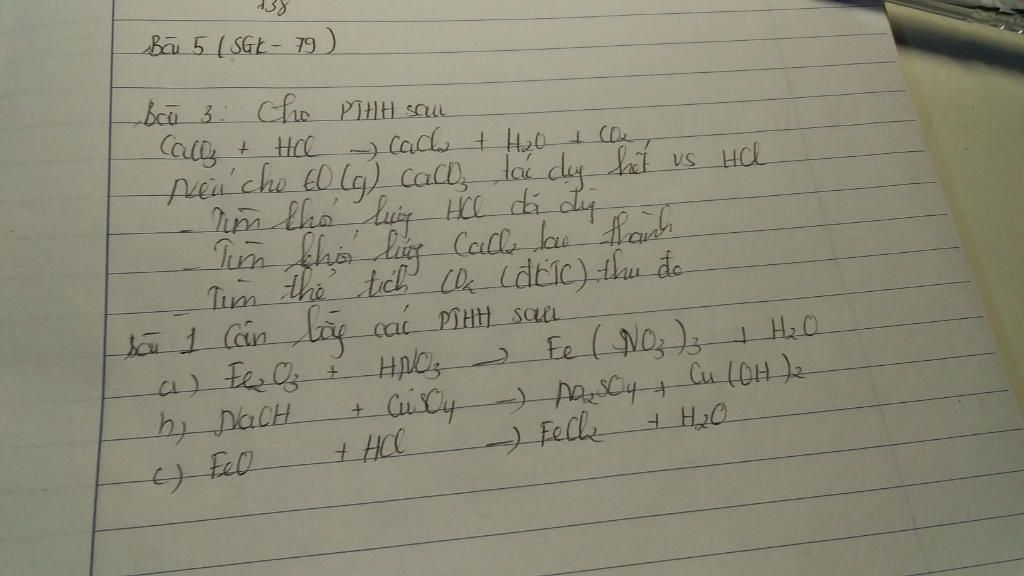 138
Bài 5 (SGK - 79)
Bài 3: Cho PTHH sau
CaCO3 + HCl → CaCl2 + H2O + CO2
Nếu cho (g) CaCO3 tác dụg hết vs HCl
- Tìm khố lượg HCl đã dùg
- Tìm khối lượg CaCl2 tạo thành
Tìm thể tích CO2 (đktc) thu đc
Bài 1 Cân bằg các PTHH sau
a) Fe2O3 + HNO3 → Fe(NO3)3 + H2O
b) NaOH + CuSO4 → Na2SO4 + Cu(OH)2
c) FeO + HCl → FeCl2 + H2O